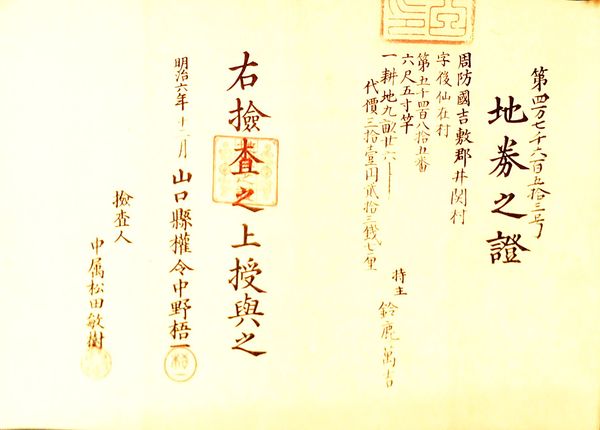 第四万七千六百五拾三号
地券之證
周防國吉敷郡井関村
字後仙在村
第五千四百八拾五番
六尺五寸竿
一耕地九畝廿六
代價三拾壹円貳拾三錢七厘
持主
鈴鹿萬吉
右撿査之上授與之
明治六年十二月
山口縣權令中野梧一
撿査人
中属松田敏樹